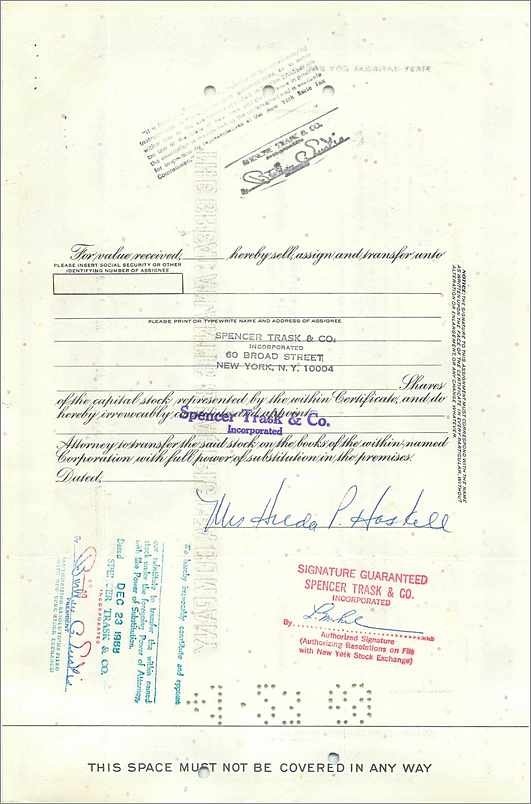 SPENCER TRASK & CO.
INCORPORATED
For value received, hereby sell, assign and transfer unto
PLEASE INSERT SOCIAL SECURITY OR OTHER
IDENTIFYING NUMBER OF ASSIGNEE
PLEASE PRINT OR TYPEWRITE NAME AND ADDRESS OF ASSIGNEE
SPENCER TRASK & CO.
INCORPORATED
60 BROAD STREET
NEW YORK, N.Y. 10004
Shares
of the capital stock represented by the within Certificate, and do
hereby irrevocably appoint
Spencer Trask & Co.
Incorporated
Attorney to transfer the said stock on the books of the within named
Corporation with full power of substitution in the premises.
Dated,
NOTICE: THE SIGNATURE TO THIS ASSIGNMENT MUST CORRESPOND WITH THE NAME
AS WRITTEN UPON THE FACE OF THE CERTIFICATE IN EVERY PARTICULAR, WITHOUT
ALTERATION OR ENLARGEMENT OR ANY CHANGE WHATEVER.
Mrs Hilda P. Haskell
We hereby irrevocably constitute and appoint
our substitute to transfer the within named
stock under the foregoing Power of Attorney
with like Power of Substitution.
Dated DEC 23 1968
SPENCER TRASK & CO.
INCORPORATED
By
PRESIDENT
SIGNATURE GUARANTEED
SPENCER TRASK & CO.
INCORPORATED
By
Authorized Signature
(Authorizing Resolutions on File
with New York Stock Exchange)
THIS SPACE MUST NOT BE COVERED IN ANY WAY